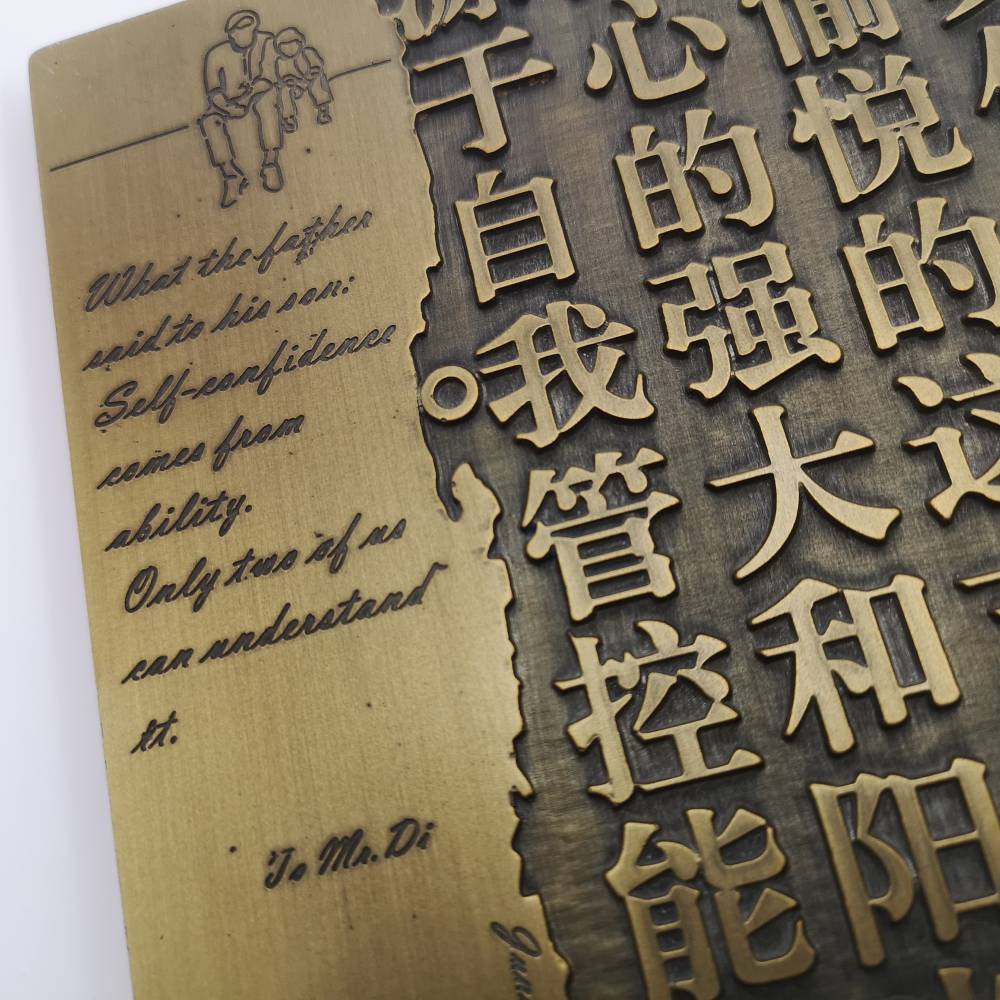 What the father
said to his son:
Self-confidence
comes from
ability.
Only two of us
can understand
it.
To Mr. Di
愉悦的这
心的强大和阳
于自我管控能
。